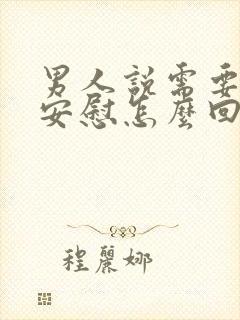 男人說需要
安慰怎麼回
程麗娜